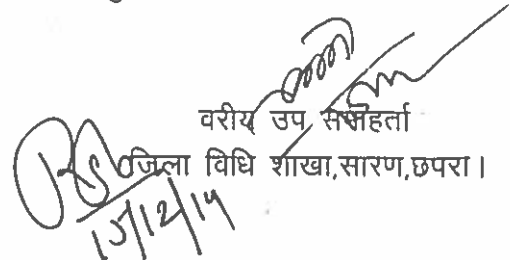 वरीय उप समाहर्ता
जिला विधि शाखा,सारण,छपरा।
15/12/14